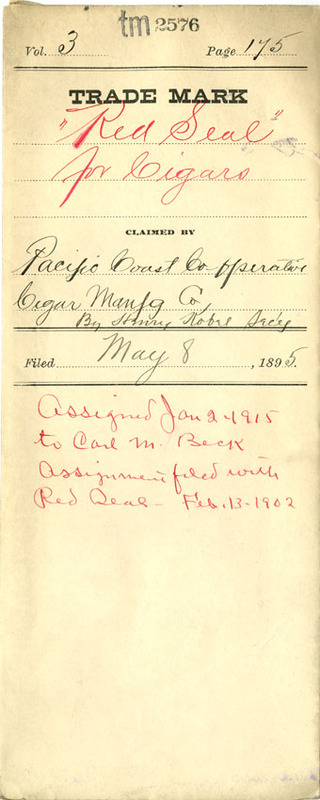 tm 2576
Vol. 3 Page 175
TRADE MARK
"Red Seal"
for Cigars
CLAIMED BY
Pacific Coast Co-operative
Cigar Manfg Co,
By Henry Secty
Filed May 8, 1895.
Assigned Jan 2-1915
to Carl M. Beck
Assignment filed with
Red Seal - Feb. 13-1902